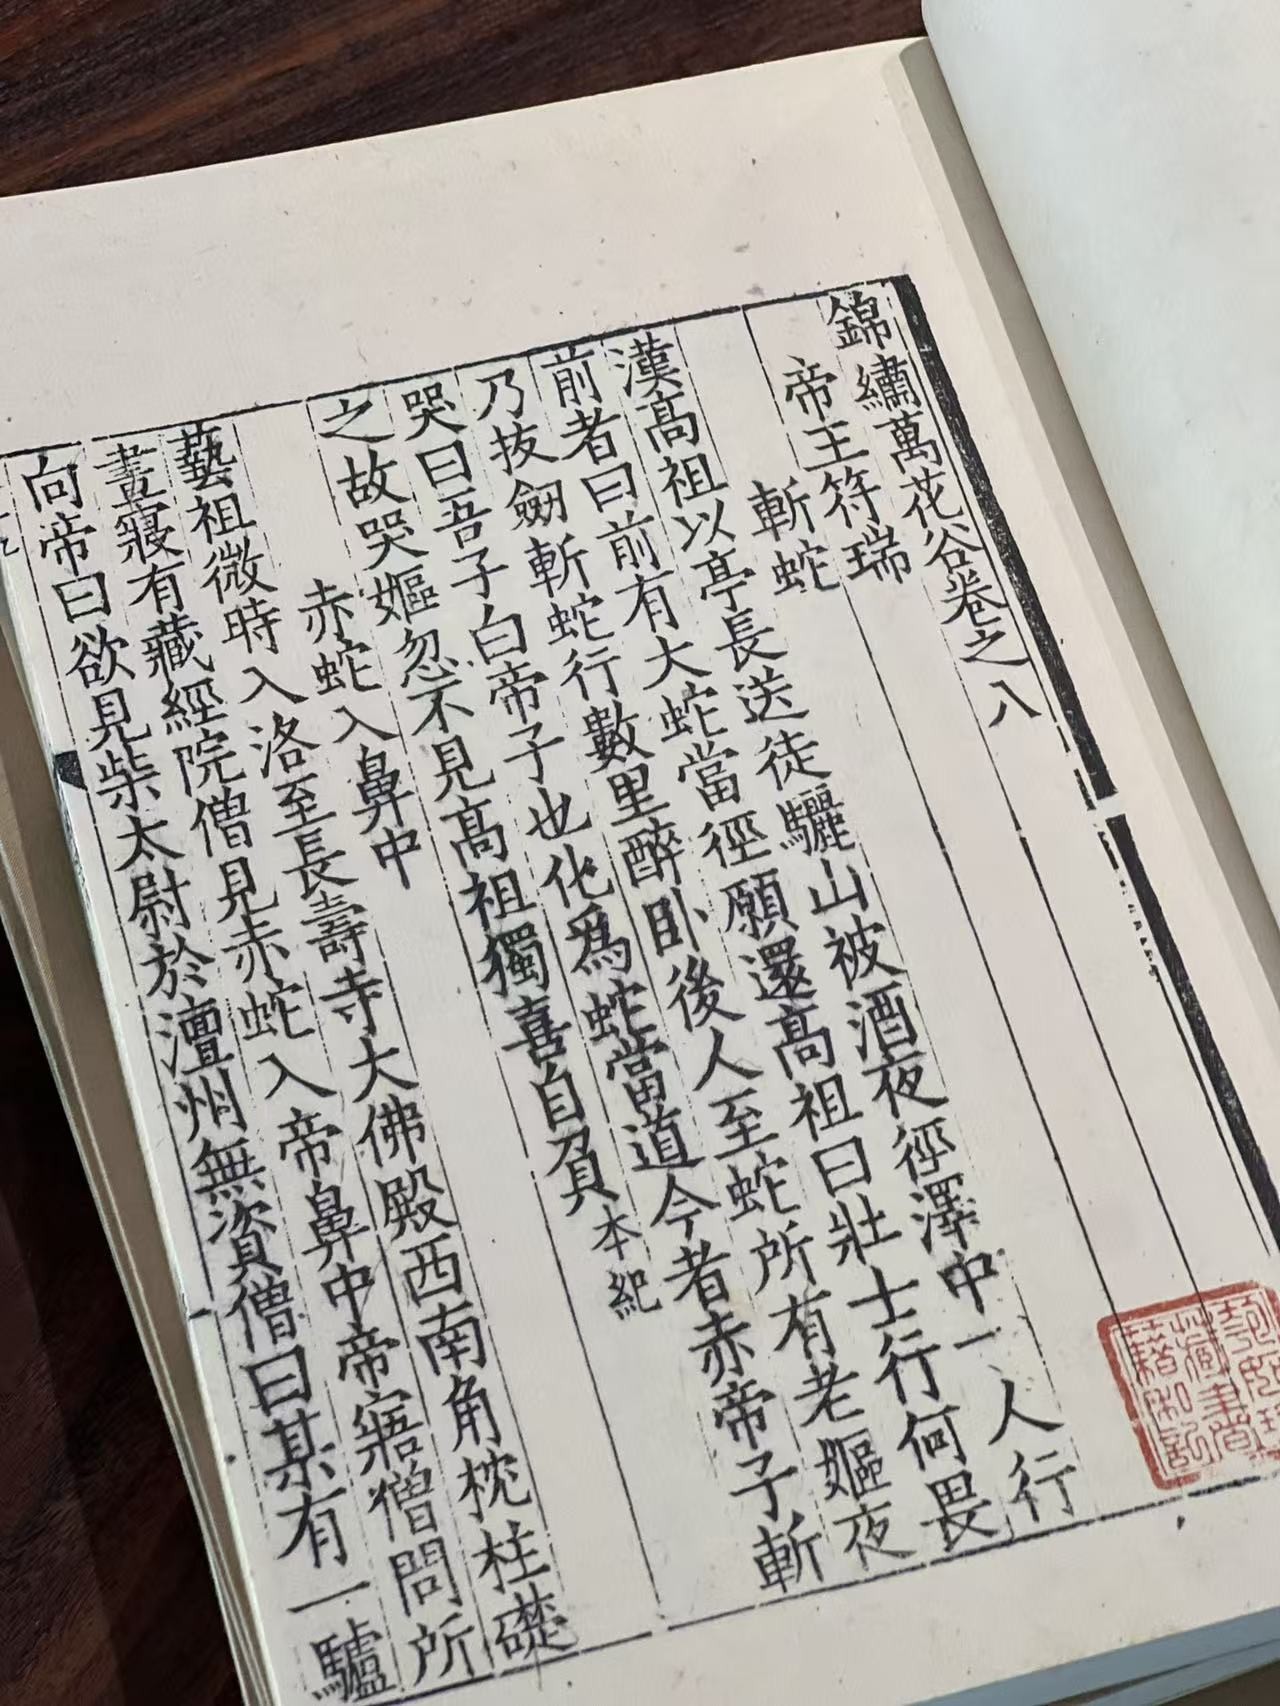 錦繡萬花谷卷之八
帝王符瑞
斬蛇
漢高祖以亭長送徒驪山被酒夜徑澤中一人行
前者曰前有大蛇當徑願還高祖曰壯士行何畏
乃抜劒斬蛇行數里醉卧後人至蛇所有老嫗夜
哭曰吾子白帝子也化爲蛇當道今者赤帝子斬
之故哭嫗忽不見高祖獨喜自負本紀
赤蛇入鼻中
藝祖微時入洛至長壽寺大佛殿西南角枕柱礎
晝寢有藏經院僧見赤蛇入帝鼻中帝寤僧問所
向帝曰欲見柴太尉於澶州無資僧曰某有一驢